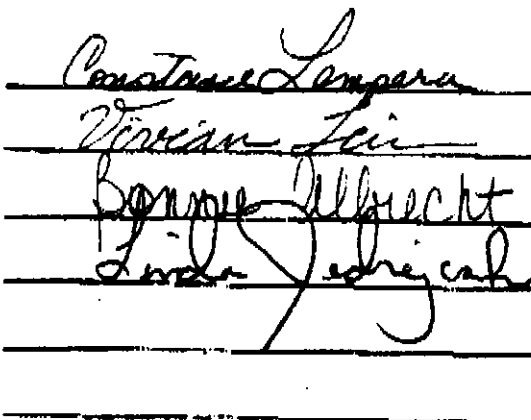 Constance Lempara
Vivian Lei
Bonnie Albrecht
Linda